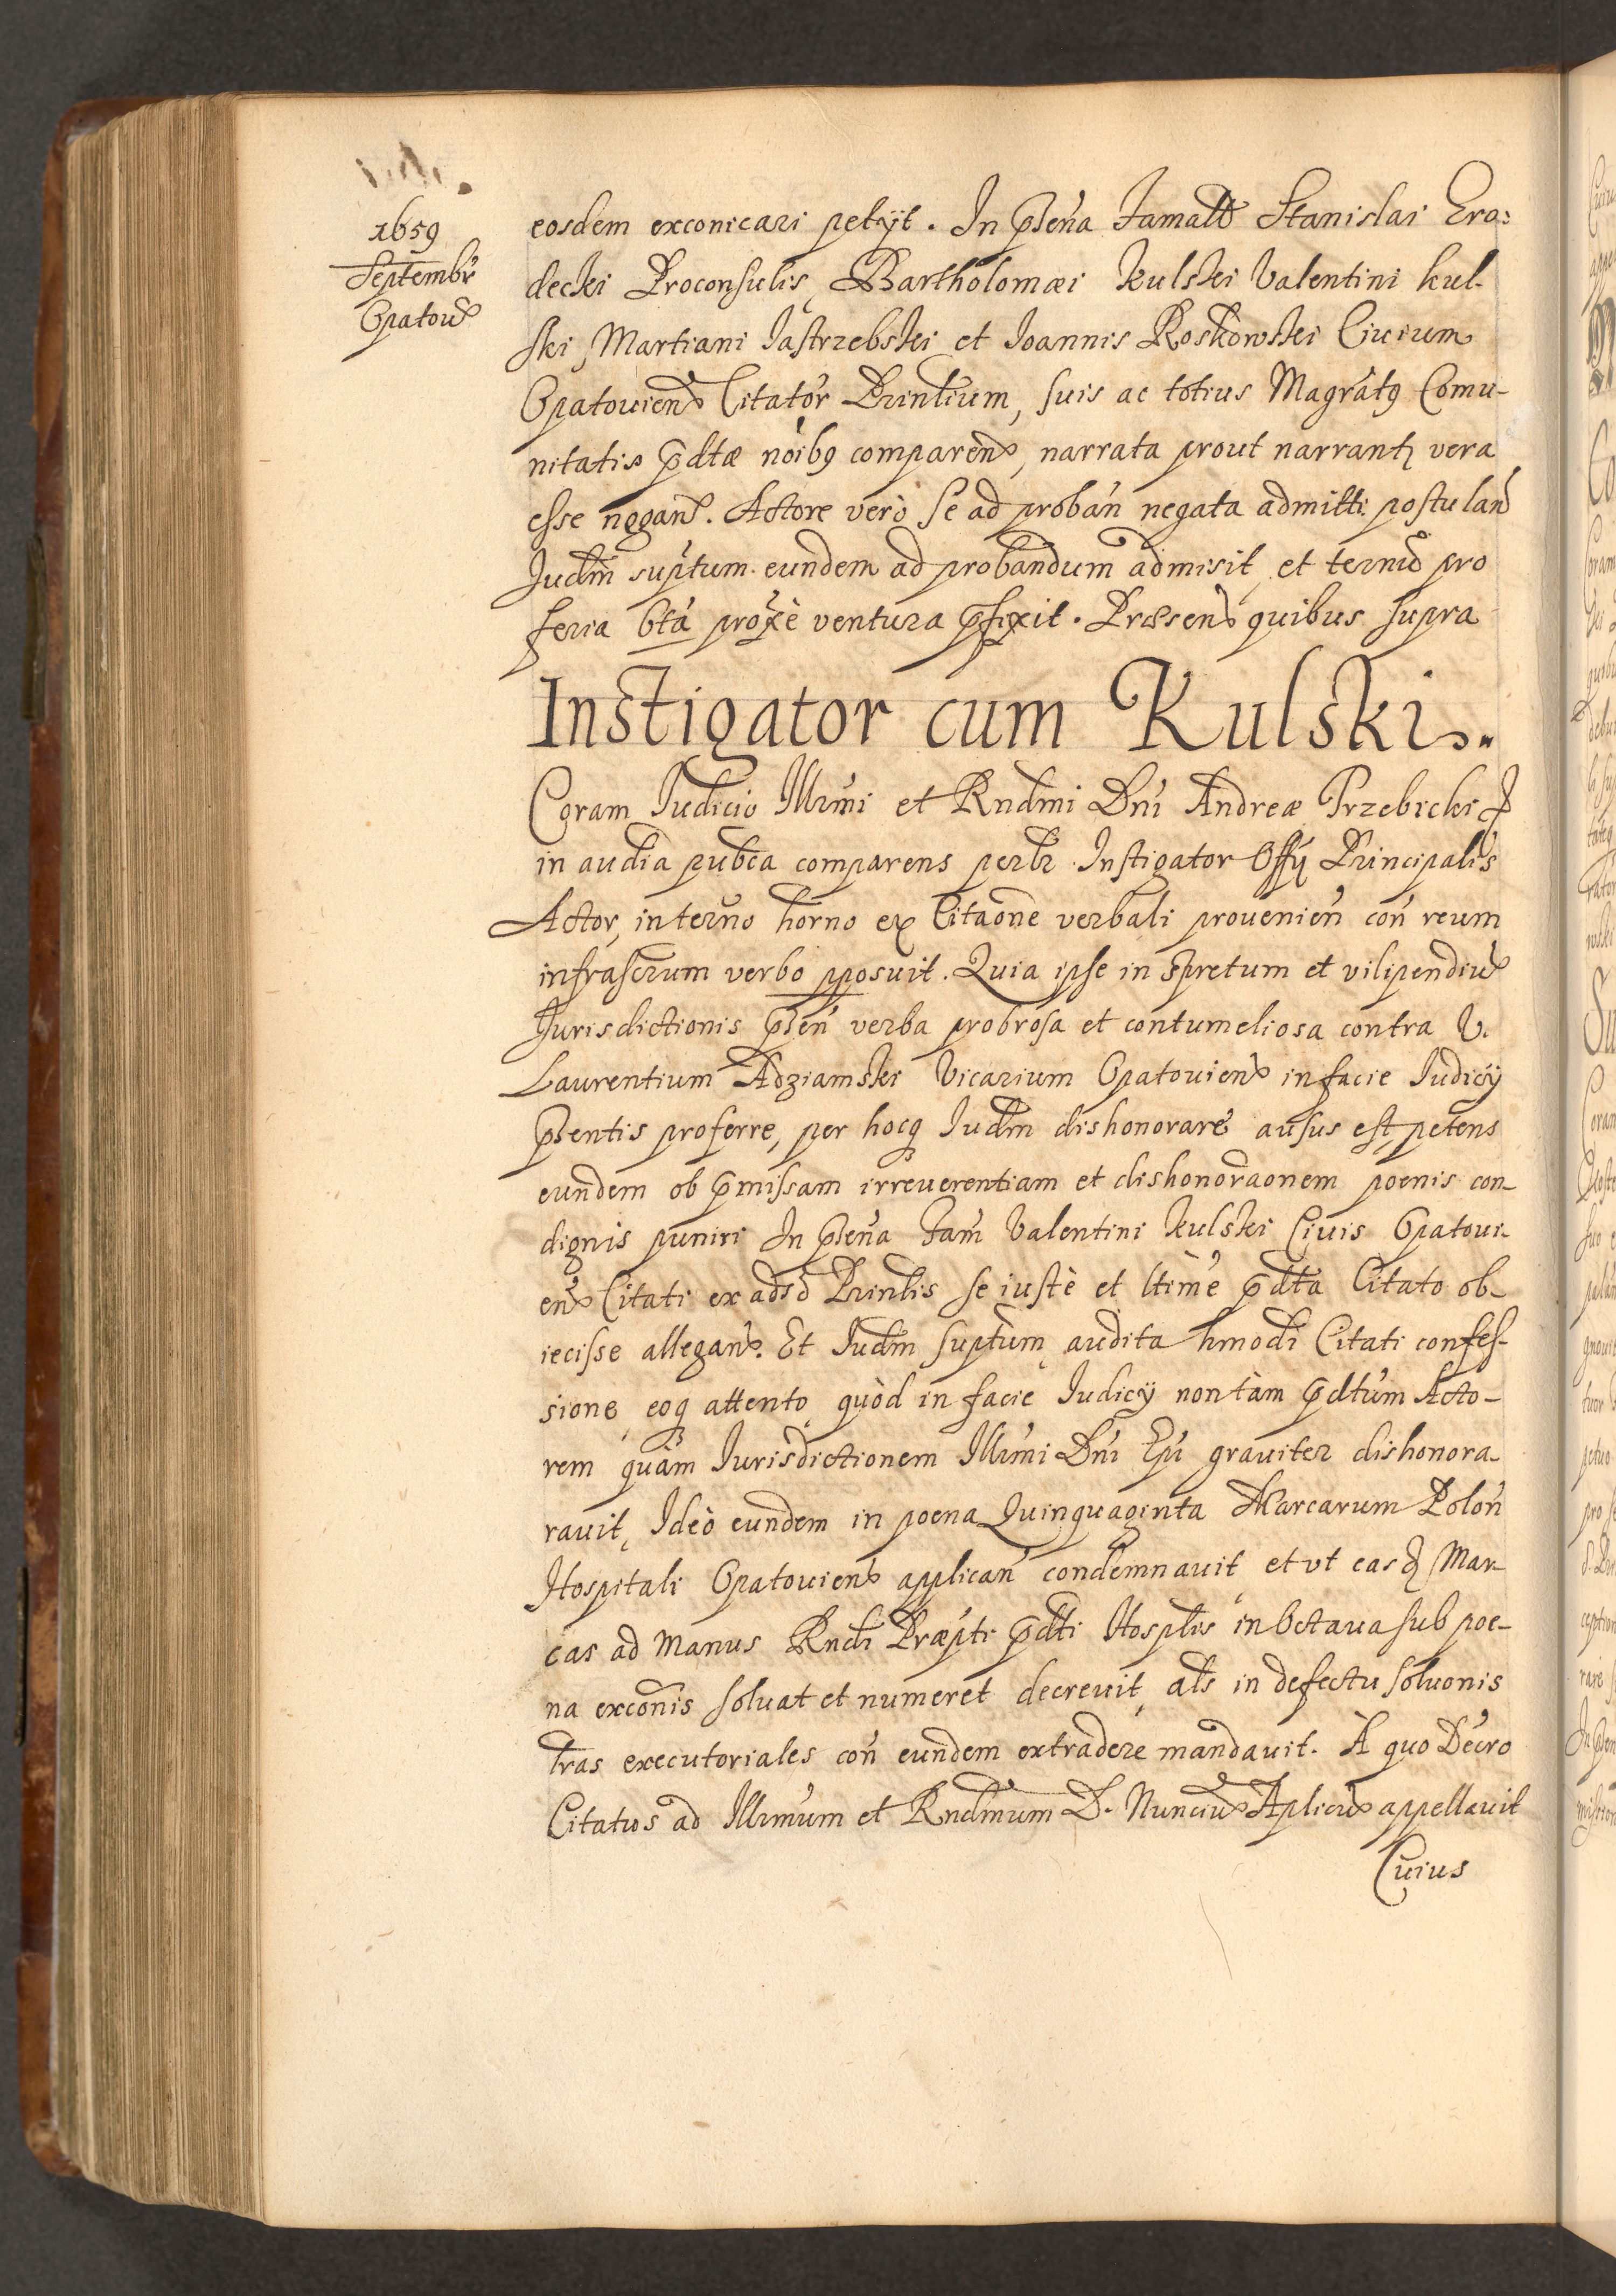 1659
Septembr
Opatov
eosdem exconicari petijt. In pñtia Famatt Stanislai Gra:
decki Proconsulis, Bartholomæi Kulski Valentini Kul-
ski, Martiani Jastrzebski et Joannis Roskowski Ciuium
Opatouien Citator Prinlium, suis ac totius Magratq Comu-
nitatis pdtæ nõibq comparen, narrata prout narrantr vera
esse negan. Actore verò se ad proban negata admitti postulan
Judm suptum eundem ad probandum admisit, et termũ pro
feria 6tá proxè ventura pfixit. Præsen quibus supra
Instigator cum Kulski.
Coram Judicio Illrmi et Rndmi Dni Andreæ Trzebicki
in audia pubca comparens perbr Instigator Offij Principalis
Actor, in termo horno ex Citaone verbali prouenien con reum
infrascrum verbo pposuit. Quia ipse in spretum et vilipendiu
Jurisdictionis psen verba probrosa et contumeliosa contra V.
Laurentium Adziamski Vicarium Opatouien in facie Judicij
psentis proferre, per hocq Judm dishonorare ausus est, petens
eundem ob pmissam irreuerentiam et dishonoraonem poenis con-
dignis puniri In psena Fam Valentini Kulski Ciuis Opatoui-
en Citati ex adso Prinlis se iustè et ltime pdta Citato ob-
iecisse allegan. Et Judm suptum audita hmodi Citati confes-
sione, eoq attento quòd in facie Judicij non tàm pdtum Acto-
rem quàm Jurisdictionem Illrmi Dni Epi grauiter dishonora-
rauit, Ideò eundem in poena Quinquaginta Marcarum Polon
Hospitali Opatouien applican condemnauit, et vt eas Mar-
cas ad manus Rndi Præpti pdti Hosplis in Octaua sub poe-
na exconis soluat et numeret decreuit, als in defectu soluonis
lras executoriales con eundem extradere mandauit. À quo Decro
Citatus ad Illrmum et Rndmum D. Nunciu Aplicu appellauit
Cuius